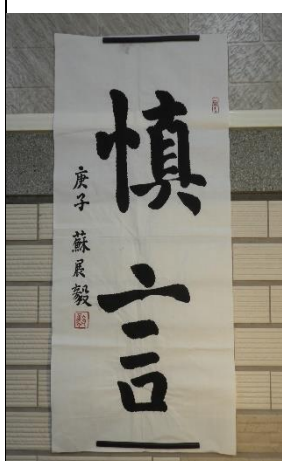 慎言
庚子 蘇展毅